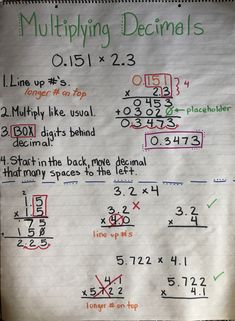 Multiplying Decimals
0.151 × 2.3
1. Line up #'s.
longer # on top
0.151
× 2.3
4
0453
+03020 ← placeholder
0.3473
2. Multiply like usual.
3. BOX digits behind decimal.
0.3473
4. Start in the back, move decimal
that many spaces to the left.
1.5
× 1.5
75
150
2.25
3.2 × 4
3.2 ×
× 4.0
line up #'s
3.2 ✓
× 4
5.722 × 4.1
4.1
× 5.722
longer # on top
5.722 ✓
× 4.1